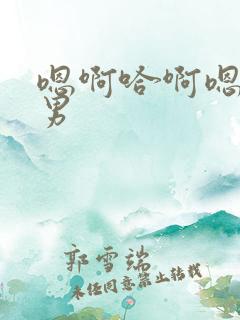 嗯啊哈啊嗯
男
郭雪端
未经同意禁止转载